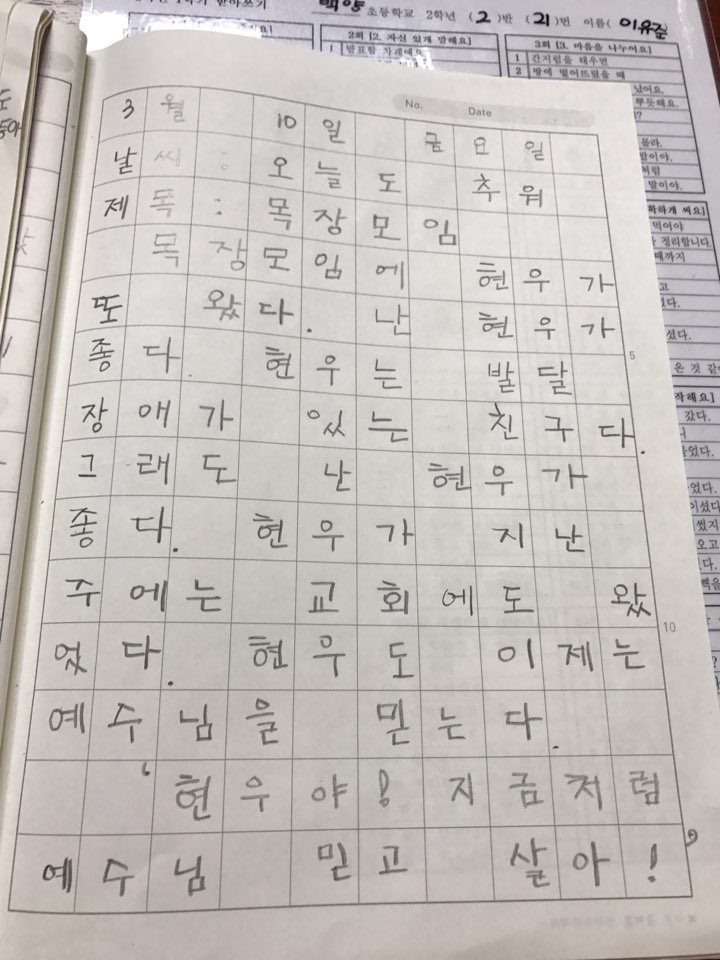 백양 초등학교 2학년 (2)반 (21)번 이름(이유준
2회 [2. 자신 있게 말해요]
3회 [3. 마음을 나누어요]
1 발표할 차례예요.
1 간지럼을 태우면
2 땅에 떨어뜨렸을 때
No. Date
3월 10일 금요일
날씨: 오늘도 추워
제목: 목장모임
목장모임에 현우가
또 왔다. 난 현우가
좋다. 현우는 발달
5
장애가 있는 친구다.
그래도 난 현우가
좋다. 현우가 지난
주에는 교회에도 왔
10
었다. 현우도 이제는
예수님을 믿는다.
‘현우야! 지금처럼
예수님 믿고 살아!’